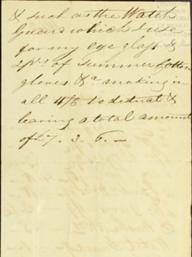 & such as the Watch
Guard which I use
for my eye glass &
2 prs of Summer Cotton
gloves &c making in
all 4/6 to deduct &
leaving a total amount
of £7. 3. 6. —